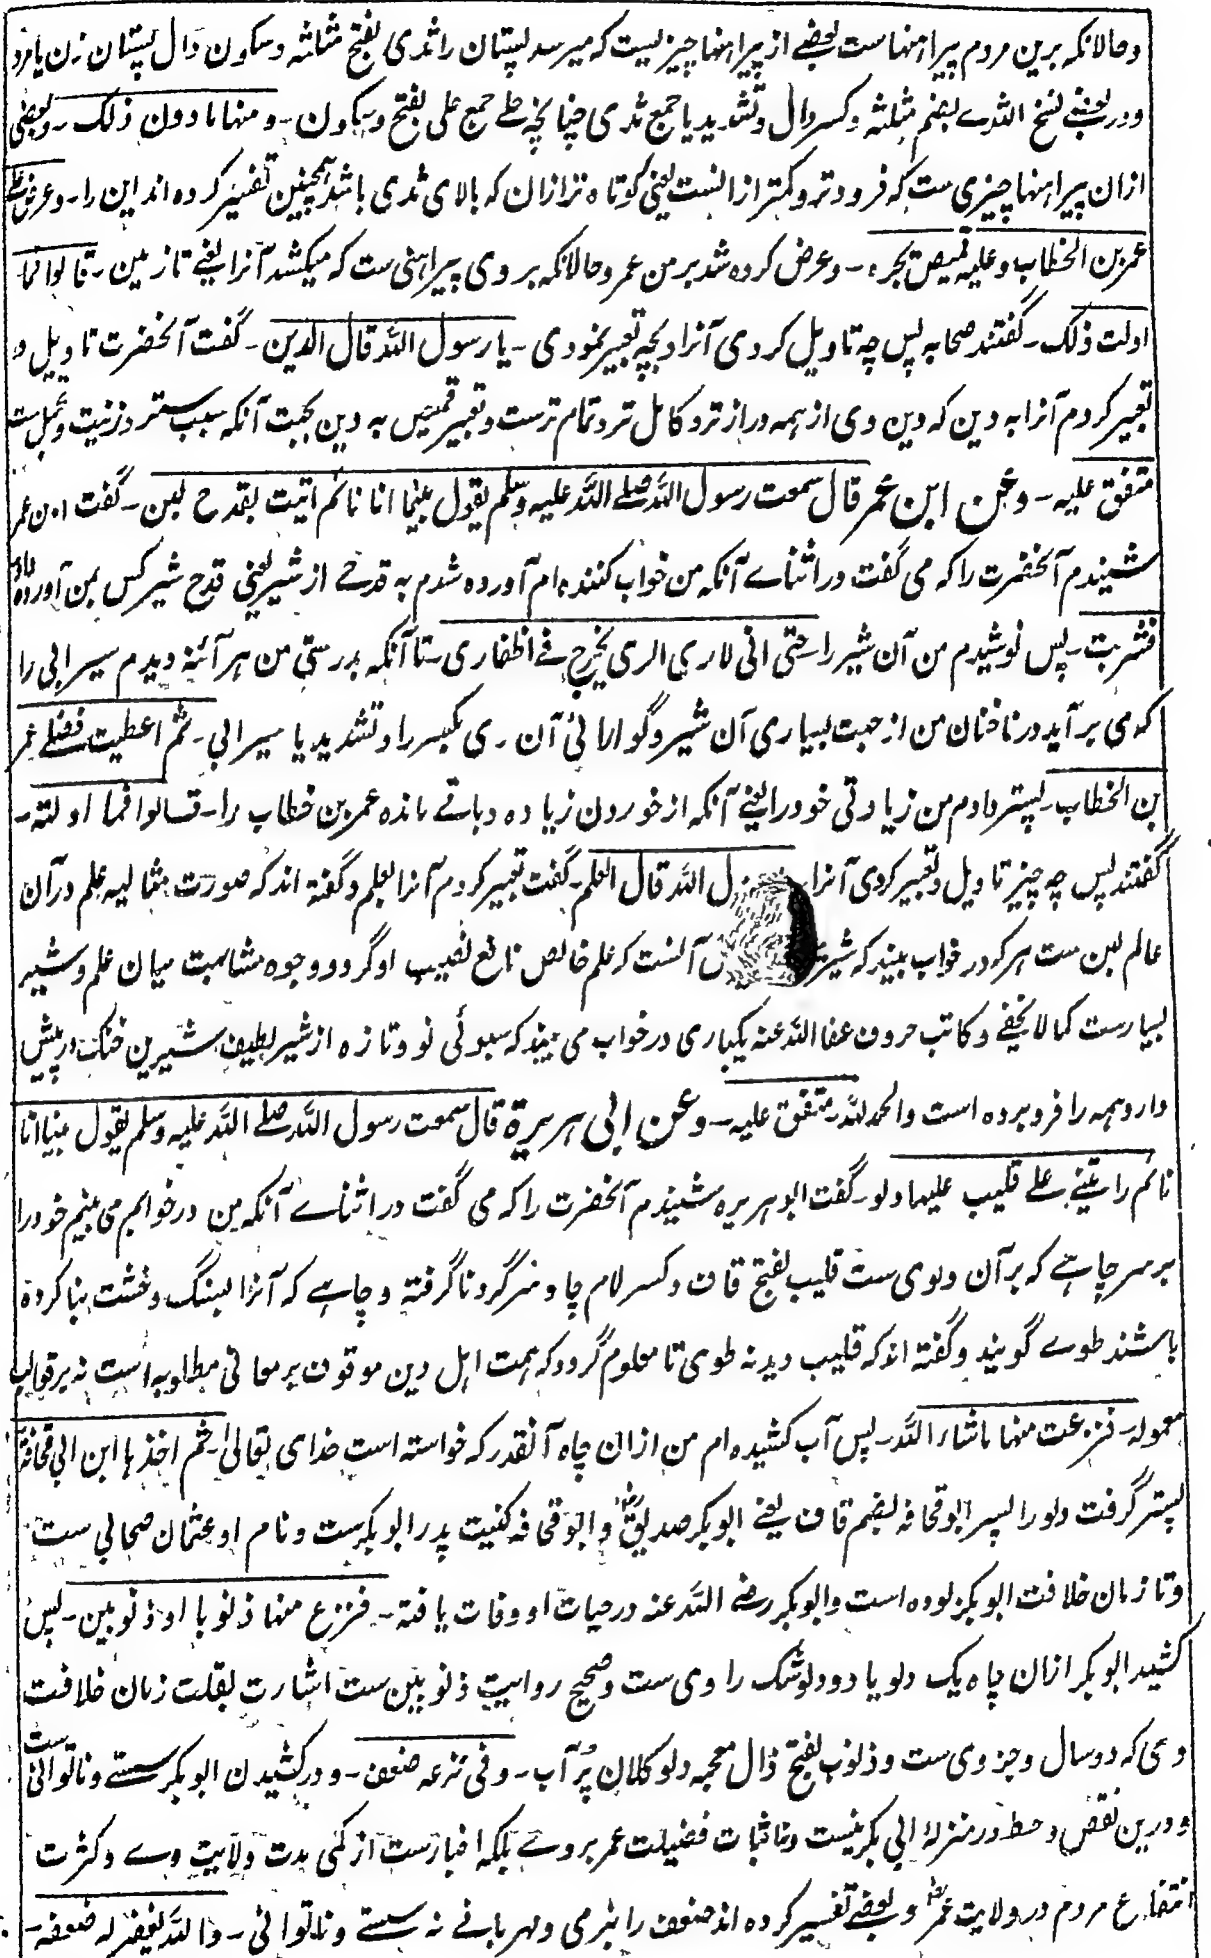 وحالانکہ برین مردم پیراہنہاست بعضے از پیراہنہا چیزیست کہ میرسد پستان را ثدی بفتح مثلثہ وسکون دال پستان زن یا مرد
ودر بعضے نسخ الثدے بضم مثلثہ وکسر دال وتشدید یا جمع ثدی چنانچہ حلے جمع علی بفتح وسکون ۔ ومنہا ما دون ذلک ۔ وبعضی
ازان پیراہنہا چیزی ست کہ فرودتر وکمتر ازانست یعنی کوتاہ تر ازان کہ بالای ثدی باشد ہمچنین تفسیر کردہ اند این را ۔ وعرض علے
عمر بن الخطاب وعلیہ قمیص یجرہ ۔ وعرض کردہ شد بر من عمر وحالانکہ بر وی پیراہنی ست کہ میکشد آنرا یعنے تا زمین ۔ قالوا فما
اولت ذلک ۔ گفتند صحابہ پس چہ تاویل کردی آنرا وبچہ تعبیر نمودی ۔ یا رسول اللہ قال الدین ۔ گفت آنحضرت تاویل و
تعبیر کردم آنرا بہ دین کہ دین وی از ہمہ دراز تر وکامل تر وتمام ترست وتعبیر قمیص بہ دین بجہت آنکہ سبب ستر وزینت وتجمل ست
متفق علیہ ۔ وعن ابن عمر قال سمعت رسول اللہ صلے اللہ علیہ وسلم یقول بینما انا نائم اتیت بقدح لبن ۔ گفت ابن عمر
شنیدم آنحضرت را کہ می گفت در اثناے آنکہ من خواب کنندہ ام آوردہ شدم بہ قدحے از شیر یعنی قدح شیر کس بمن آورد
فشربت ۔ پس نوشیدم من آن شیر را ۔ حتی انی لاری الری یخرج فے اظفاری ۔ تا آنکہ بدرستی من ہر آئنہ دیدم سیرابی را
کہ می برآید در ناخنان من از جہت بسیاری آن شیر وگوارائی آن ۔ ری بکسر را وتشدید یا سیرابی ۔ ثم اعطیت فضلے عمر
بن الخطاب ۔ پستر دادم من زیادتی خود را یعنے آنکہ از خوردن زیادہ وباقے ماندہ عمر بن خطاب را ۔ قالوا فما اولتہ ۔
گفتند پس چہ چیز تاویل وتعبیر کردی آنرا ۔ ول اللہ قال العلم ۔ گفت تعبیر کردم آنرا بعلم وگفتہ اند کہ صورت مثالیہ علم در آن
عالم لبن ست ہر کہ در خواب بیند کہ شیر آنست کہ علم خالص نافع نصیب او گردد ووجوہ مشابہت میان علم وشیر
بسیارست کما لا یخفے وکاتب حروف عفا اللہ عنہ یکباری در خواب می بیند کہ سبوئی نو وتازہ از شیر لطیف شیرین خنک در پیش
دارد وہمہ را فرو بردہ است والحمد للہ ۔ متفق علیہ ۔ وعن ابی ہریرۃ قال سمعت رسول اللہ صلے اللہ علیہ وسلم یقول بینا انا
نائم رایتنے علے قلیب علیہا دلو ۔ گفت ابو ہریرہ شنیدم آنحضرت را کہ می گفت در اثناے آنکہ من در خوابم می بینم خود را
بر سر چاہے کہ بر آن دلوی ست قلیب بفتح قاف وکسر لام چاہ سر گرد ناگرفتہ وچاہے کہ آنرا بسنگ وخشت بنا کردہ
باشند طوے گویند وگفتہ اند کہ قلیب دید نہ طوی تا معلوم گردد کہ ہمت اہل دین موقوف بر معانی مطلوبہ است نہ بر قوالب
معمولہ ۔ فنزعت منہا ما شاء اللہ ۔ پس آب کشیدہ ام من ازان چاہ آنقدر کہ خواستہ است خدای تعالی ۔ ثم اخذہا ابن ابی قحافۃ
پستر گرفت دلو را پسر ابو قحافہ بضم قاف یعنے ابوبکر صدیق وابو قحافہ کنیت پدر ابوبکرست ونام او عثمان صحابی ست
وتا زمان خلافت ابوبکر بودہ است وابوبکر رضے اللہ عنہ در حیات او وفات یافتہ ۔ فنزع منہا ذنوبا او ذنوبین ۔ پس
کشید ابوبکر ازان چاہ یک دلو یا دو دلو شک راوی ست وصحیح روایت ذنوبین ست اشارت بقلت زمان خلافت
وی کہ دو سال وچزوی ست وذنوب بفتح ذال معجمہ دلو کلان پُر آب ۔ وفی نزعہ ضعف ۔ ودر کشیدن ابوبکر سستے وناتوانی ست
ودرین نقص وحط در منزلۂ ابی بکر نیست ونہ اثبات فضیلت عمر بر وے بلکہ اخبارست از کمی مدت ولایت وے وکثرت
انتفاع مردم در ولایت عمر وبعضے تفسیر کردہ اند ضعف را بنرمی ومہربانے نہ سستے وناتوانی ۔ واللہ یغفر لہ ضعفہ ۔